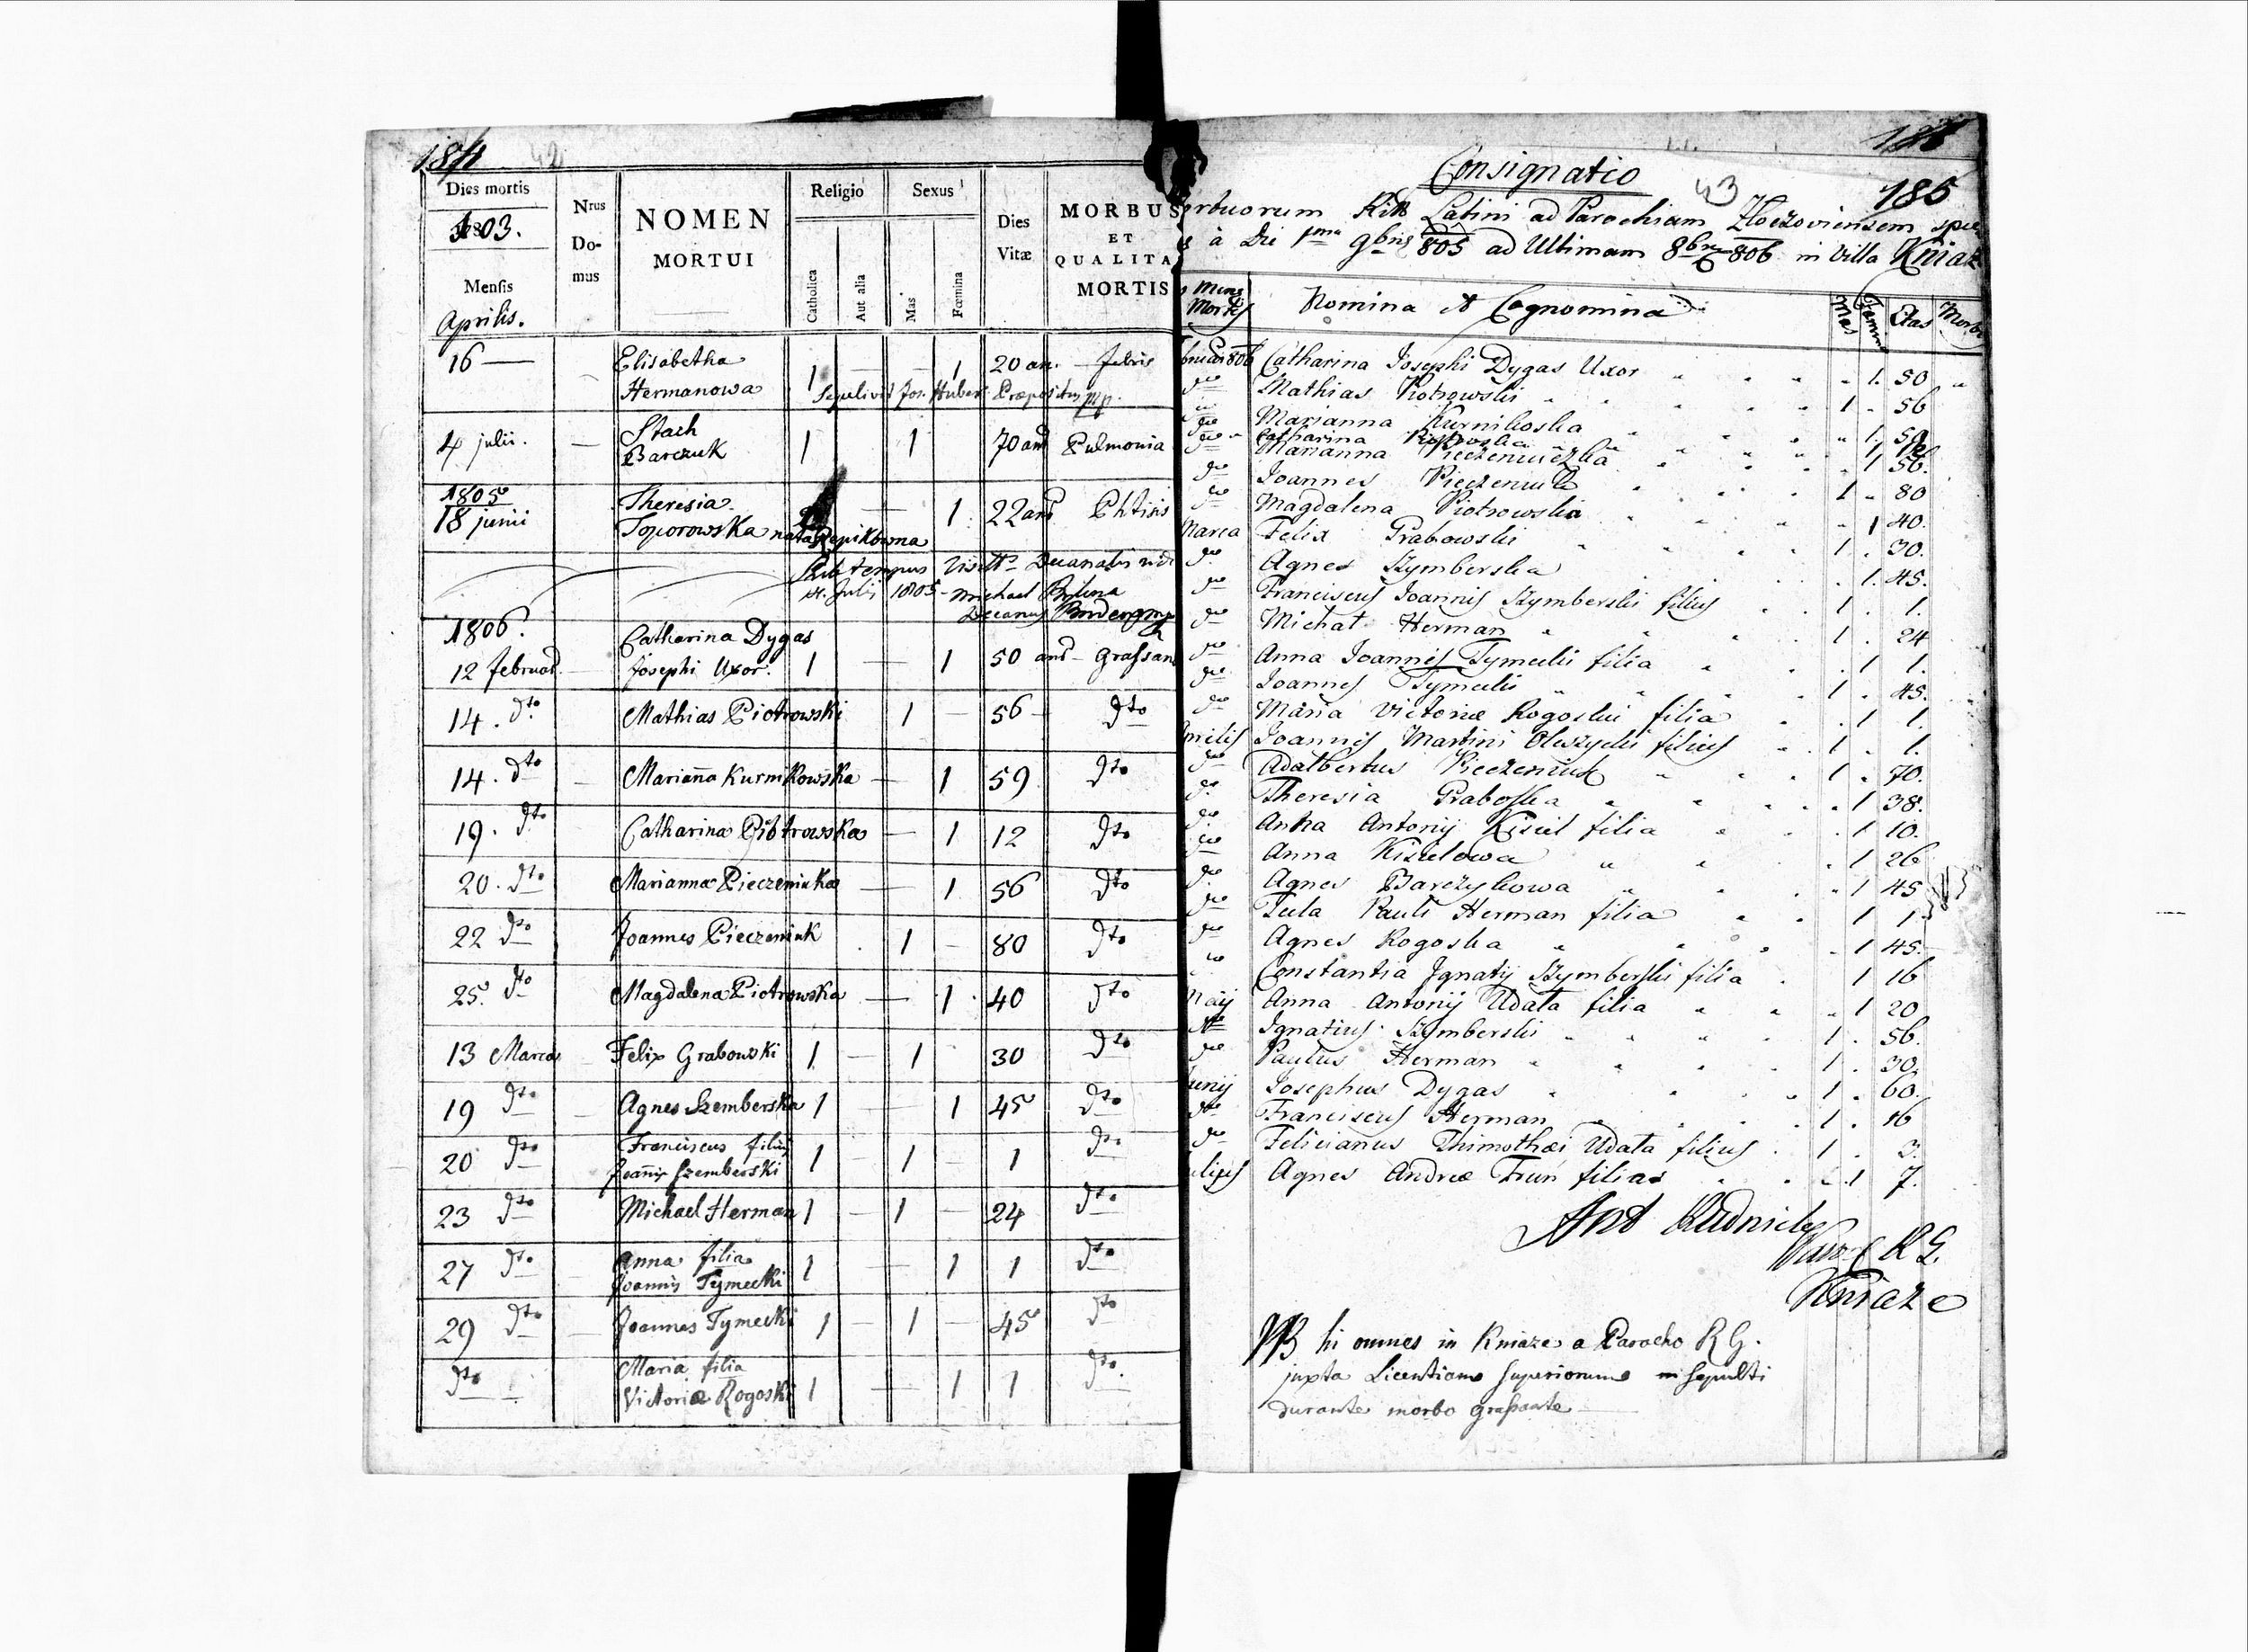 184 42
Dies mortis
1803.
Mensis
Aprilis.
Nrus Do-mus
NOMEN
MORTUI
Religio
Catholica
Aut alia
Sexus
Mas
Fœmina
Dies
Vitæ
MORBUS
ET
QUALITA
MORTIS
16 — Elisabetha 1 — — 1 20 an. febris
Hermanowa Sepelivit Jos. Huber Præpositus mp.
4 julii. — Stach
Barczuk 1 1 70 and Pulmonia
1805
18 junii Theresia
Toporowska nata Repikowna — 1 22 and Phtisis
Sub tempus Visitt. Decanalis
4. Julij 1805 - Michael
Decanus
1806.
12 februar. Catharina Dygas
Josephi Uxor. 1 — 1 50 and - Grassan
14. dto Mathias Piotrowski 1 — 56 — dto
14. dto Marianna Kurnikowska — 1 59 dto
19. dto Catharina Piotrowska — 1 12 dto
20. dto Marianna Pieczeniuka — 1 56 dto
22 dto Joannes Pieczeniuk 1 — 80 dto
25. dto Magdalena Piotrowska — 1 40 dto
13 Marca Felix Grabowski 1 — 1 30 dto
19 dto Agnes Szemberska 1 — 1 45 dto
20 dto Franciscus filius
Joannis Szemberski 1 — 1 — 1 dto
23 dto Michael Herman 1 — 1 — 24 dto
27 dto Anna filia
Joannis Tymecki 1 — 1 1 dto
29 dto Joannes Tymecki 1 — 1 — 45 dto
dto Maria filia
Victoriæ Rogoski 1 — 1 1 dto.
Consignatio 43 185
rtuorum Latini ad Parochiam Zloczoviensem
à Die 1ma 9bris 805 ad Ultimam 8bris 806 in Villa Kniaz
Mens
Mortis Nomina et Cognomina Mas Femi Etas Morb
bruar 806 Catharina Josephi Dygas Uxor 1. 50
dto Mathias Piotrowski 1 56
dto Marianna Kurnikoska 1. 59
dto Catharina Piotroska 1 12
dto Marianna Pieczeniuczka 1 56.
dto Joannes Pieczeniuk 1 80
dto Magdalena Piotrowska 1 40.
Marca Felix Grabowski 1. 30.
dto Agnes Szymberska 1. 45.
dto Franciscus Joannis Szymberski filius 1. 1.
dto Michał Herman 1. 24
dto Anna Joannis Tymecki filia 1 1.
dto Joannes Tymecki 1. 45.
dto Maria Victoriæ Rogoskii filia 1 1.
prilis Joannes Martini Oleszycki filius 1. 1.
dto Adalbertus Pieczeniuk 1. 70.
dto Theresia Graboska 1 38.
dto Anna Antonij Kisiel filia 1 10.
dto Anna Kisielowa 1 26
dto Agnes Barczykowa 1 45
dto Tecla Pauli Herman filia 1 1
dto Agnes Rogoska 1 45.
Constantia Ignatij Szymberski filia 1 16
Maij Anna Antonij Udała filia 1 20
dto Ignatius Szymberski 1. 56.
dto Paulus Herman 1. 30.
Junij Josephus Dygas 1. 60.
dto Franciscus Herman 1. 16
dto Felicianus Thimothæi Udała filius 1. 3.
Agnes Andreæ filia 1 7.
Ant Rudnicki
R G.
Kniaze
NB hi omnes in Kniaze a Parocho R G.
juxta Licentiam Superiorum sepulti
durante morbo grassante